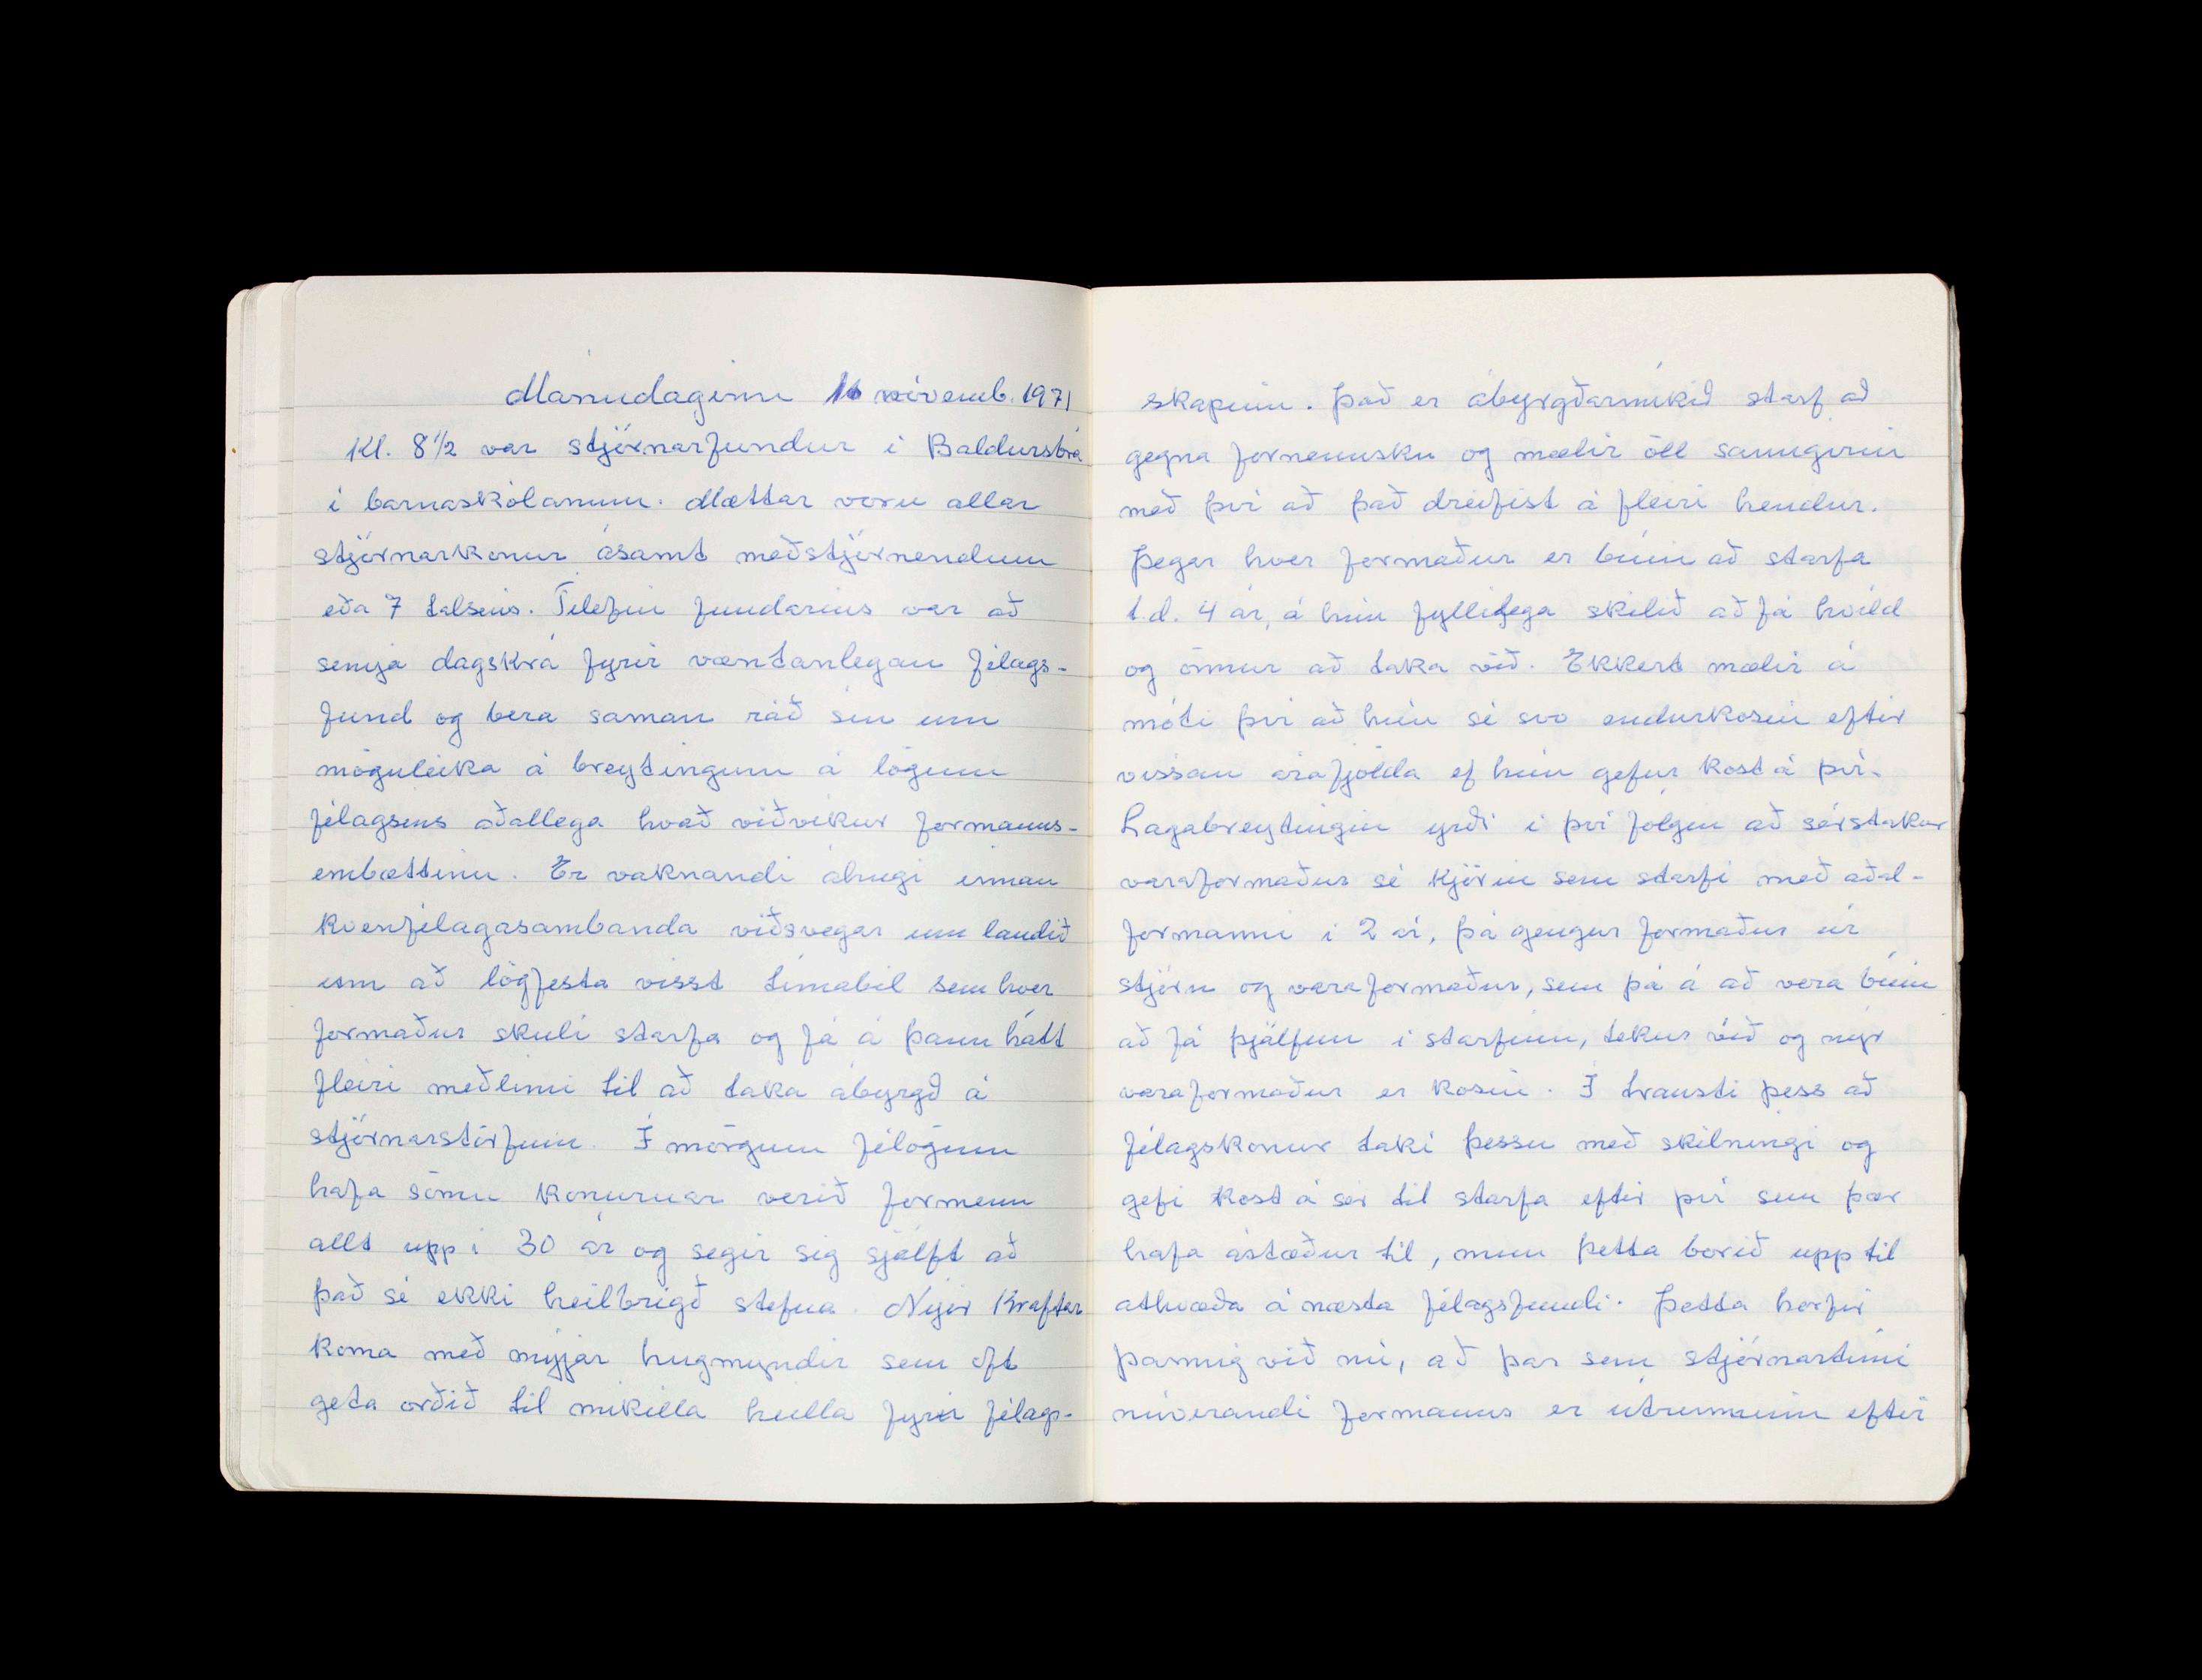 Mánudaginn nóvemb. 1971
Kl. 8 1/2 var stjórnarfundur i Baldursbrá
i barnaskólanum. Mættar voru allar
stjórnarkonur ásamt meðstjórnendum
eða 7 talsins. Tilefni fundarins var að
semja dagskrá fyrir væntanlegan félags-
fund og bera saman ráð sín um
möguleika á breytingum á lögum
félagsins aðallega hvað viðvíkur formanns-
embættinu. Er vaknandi áhugi innan
kvenfélagasambanda viðsvegar um landið
um að lögfesta visst tímabil sem hver
formaður skuli starfa og fá á þann hátt
fleiri meðlimi til að taka ábyrgð á
stjórnarstörfum. Í mörgum félögum
hafa sömu konurnar verið formenn
allt upp i 30 ár og segir sig sjálft að
það sé ekki heilbrigð stefna. Nýir kraftar
koma með nýjar hugmyndir sem oft
geta orðið til mikilla heilla fyrir félags-
skapinn. Það er ábyrgðarmikið starf að
gegna formennsku og mælir öll sanngirni
með því að það dreifist á fleiri hendur.
Þegar hver formaður er búin að starfa
t.d. 4 ár, á hún fyllilega skilið að fá hvíld
og önnur að taka við. Ekkert mælir á
móti því að hún sé svo endurkosin eftir
vissan árafjölda ef hún gefur kost á því.
Lagabreytingin yrði i því fólgin að sérstakur
varaformaður sé kjörin sem starfi með aðal-
formanni i 2 ár, þá gengur formaður úr
stjórn og varaformaður, sem þá á að vera búin
að fá þjálfun i starfinu, tekur við og nýr
varaformaður er kosin. Í trausti þess að
félagskonur taki þessu með skilningi og
gefi kost á sér til starfa eftir því sem þær
hafa ástæður til, mun þetta borið upp til
athvæða á næsta félagsfundi. Þetta horfir
þannig við nú, að þar sem stjórnartími
núverandi formanns er útrunninn eftir